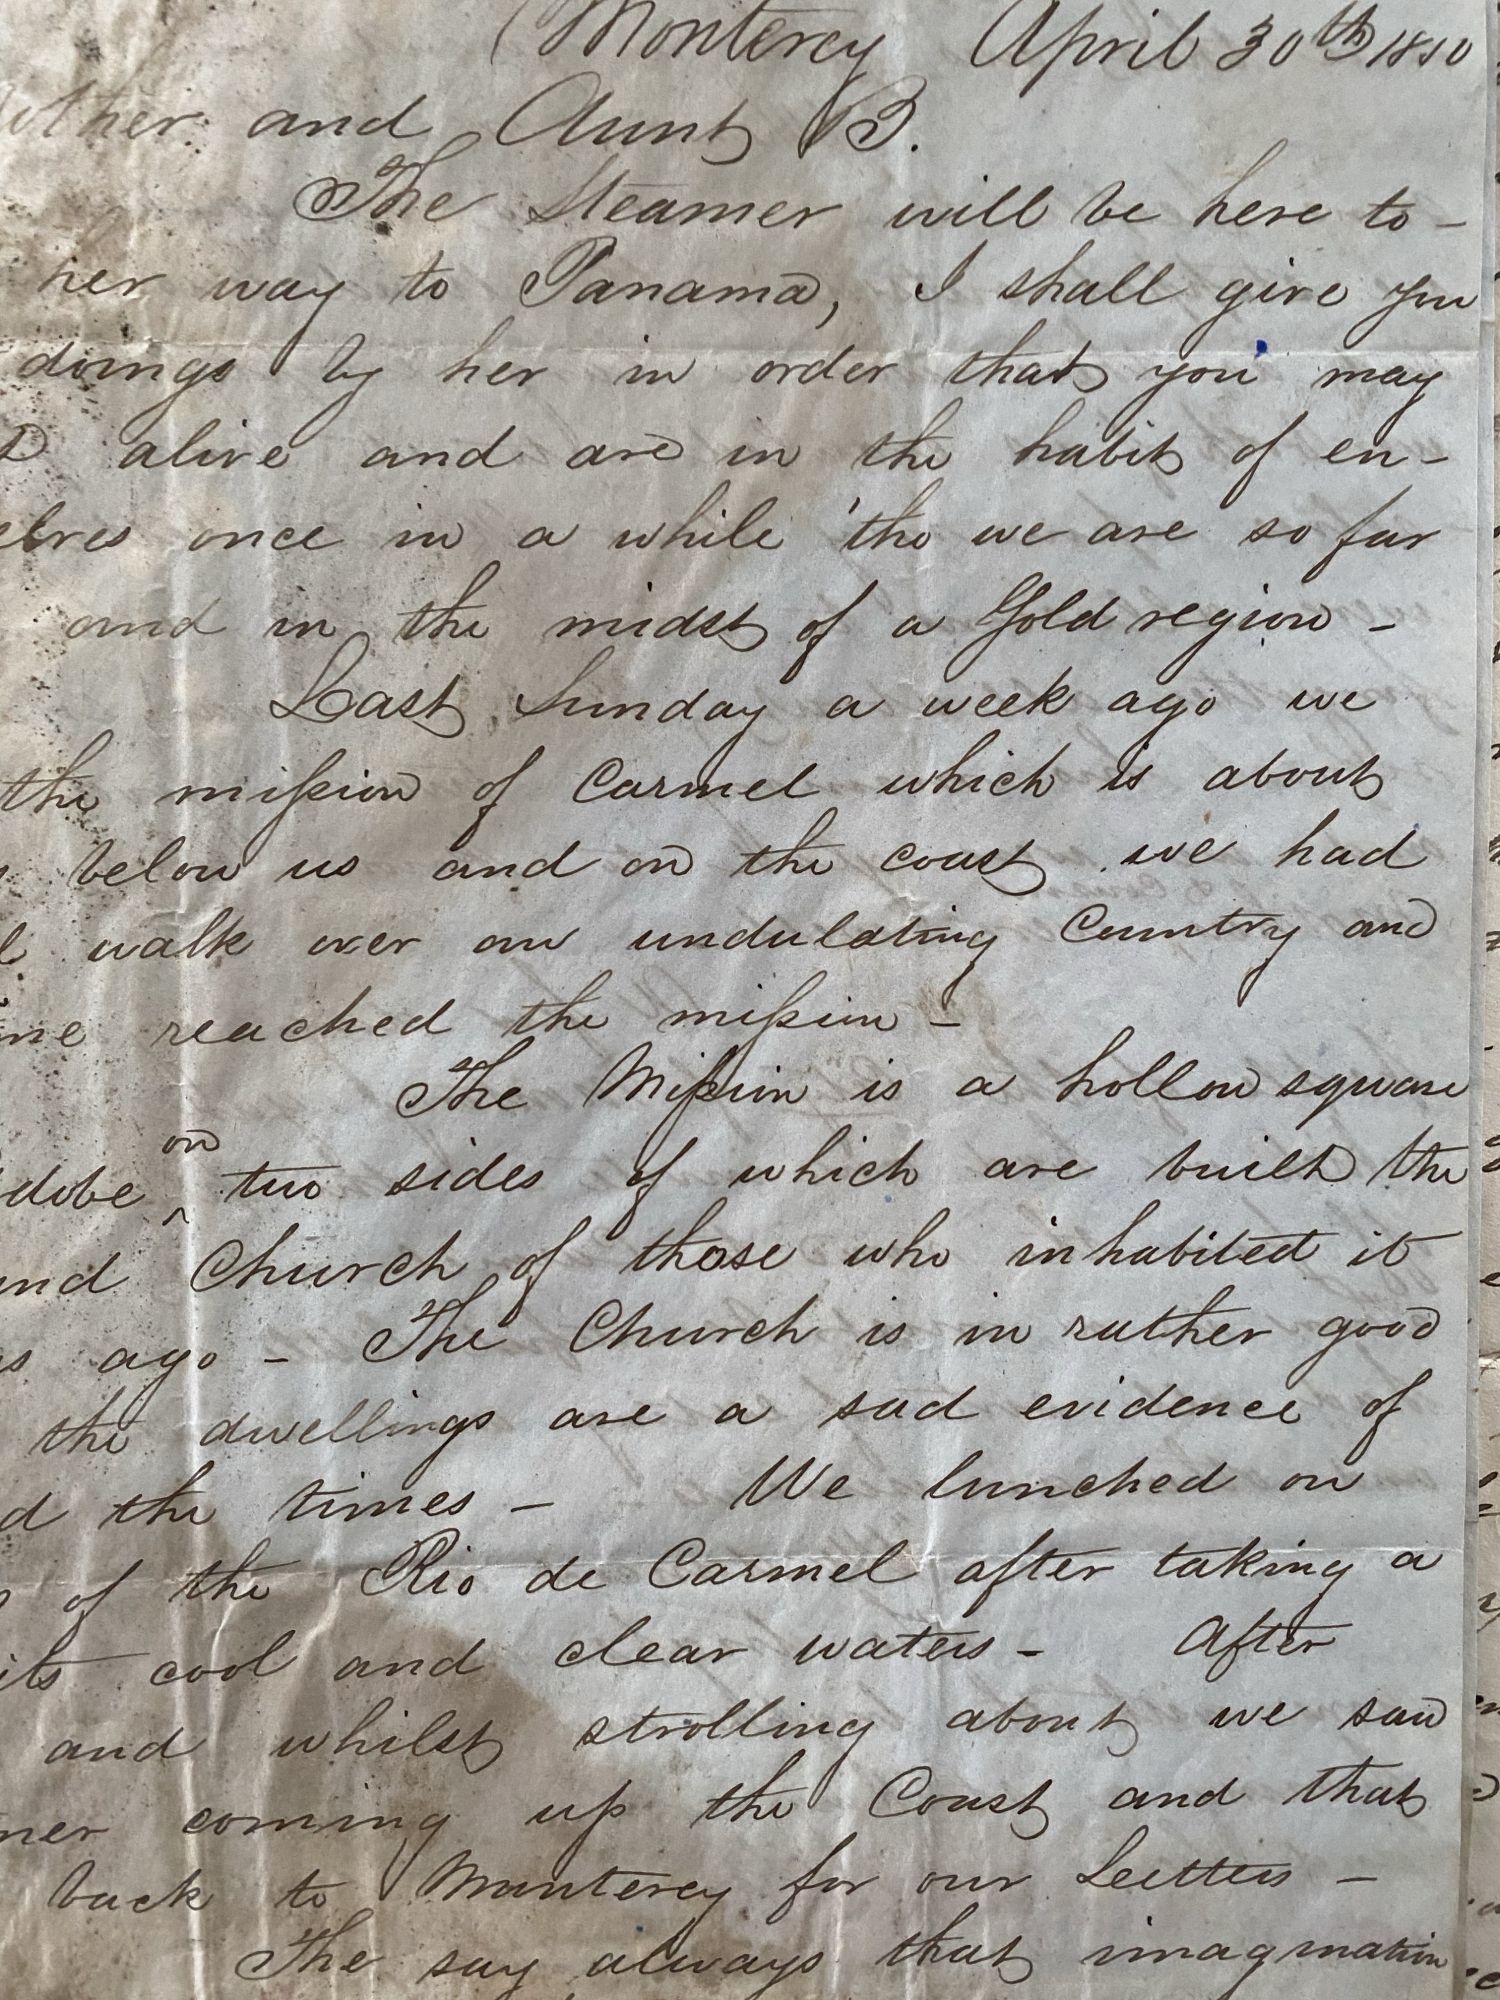 Monterey April 30th 1850
and Aunt B.
The Steamer will be here to-
her way to Panama, I shall give you
doings by her in order that you may
alive and are in the habit of en-
elves once in a while 'tho we are so far
and in the midst of a Gold region -
Last Sunday a week ago we
the mission of Carmel which is about
below us and on the coast we had
walk over an undulating Country and
me reached the mission -
The Mission is a hollow square
on
dobe ^ two sides of which are built the
and Church of those who inhabited it
ago - The Church is in rather good
the dwellings are a sad evidence of
the times - We lunched on
of the Rio de Carmel after taking a
its cool and clear waters - After
and whilst strolling about we saw
mer coming up the Coast and that
back to Monterey for our Letters -
The say always that imagination